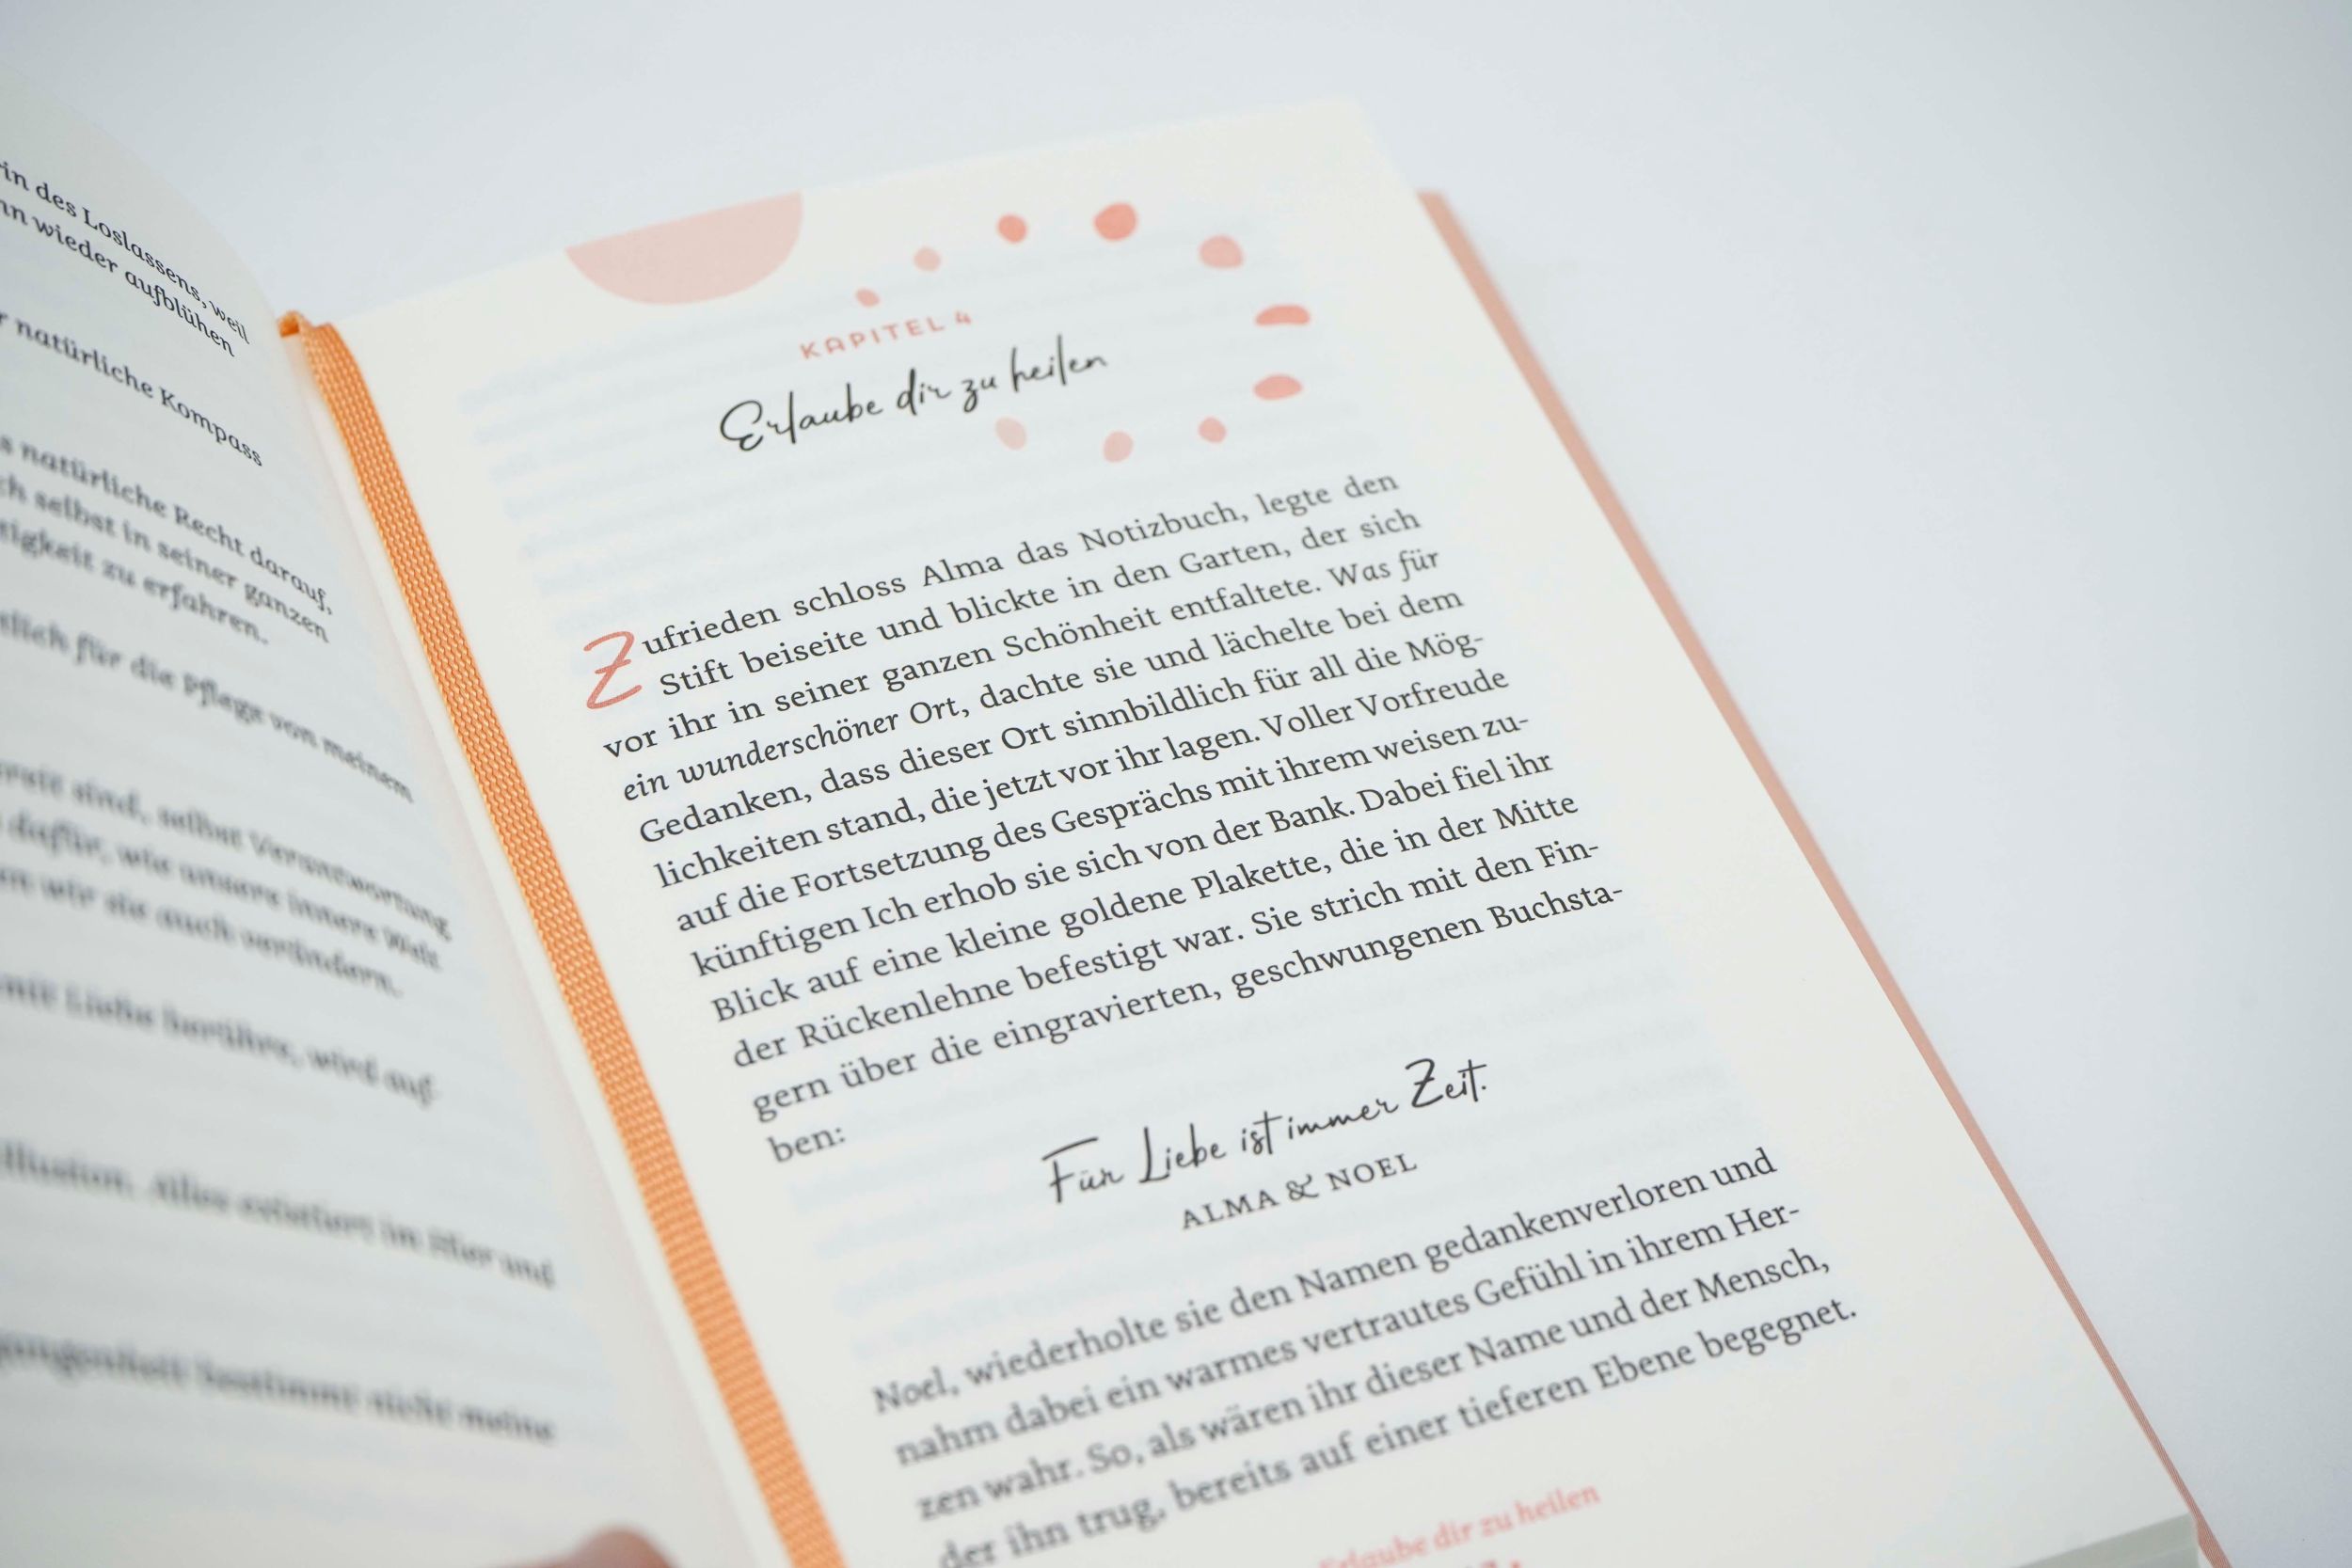 in des Loslassens, weil
nn wieder aufblühen
r natürliche Kompass
s natürliche Recht darauf,
ch selbst in seiner ganzen
tigkeit zu erfahren.
tlich für die Pflege von meinem
sind, selbst Verantwortung
dafür, wie unsere innere Welt
wir sie auch verändern.
mit Liebe berühre, wird auf-
Illusion. Alles existiert im Hier und
bestimmt nicht meine
KAPITEL 4
Erlaube dir zu heilen
Zufrieden schloss Alma das Notizbuch, legte den
Stift beiseite und blickte in den Garten, der sich
vor ihr in seiner ganzen Schönheit entfaltete. Was für
ein wunderschöner Ort, dachte sie und lächelte bei dem
Gedanken, dass dieser Ort sinnbildlich für all die Mög-
lichkeiten stand, die jetzt vor ihr lagen. Voller Vorfreude
auf die Fortsetzung des Gesprächs mit ihrem weisen zu-
künftigen Ich erhob sie sich von der Bank. Dabei fiel ihr
Blick auf eine kleine goldene Plakette, die in der Mitte
der Rückenlehne befestigt war. Sie strich mit den Fin-
gern über die eingravierten, geschwungenen Buchsta-
ben:
Für Liebe ist immer Zeit.
ALMA & NOEL
Noel, wiederholte sie den Namen gedankenverloren und
nahm dabei ein warmes vertrautes Gefühl in ihrem Her-
zen wahr. So, als wären ihr dieser Name und der Mensch,
der ihn trug, bereits auf einer tieferen Ebene begegnet.
Erlaube dir zu heilen